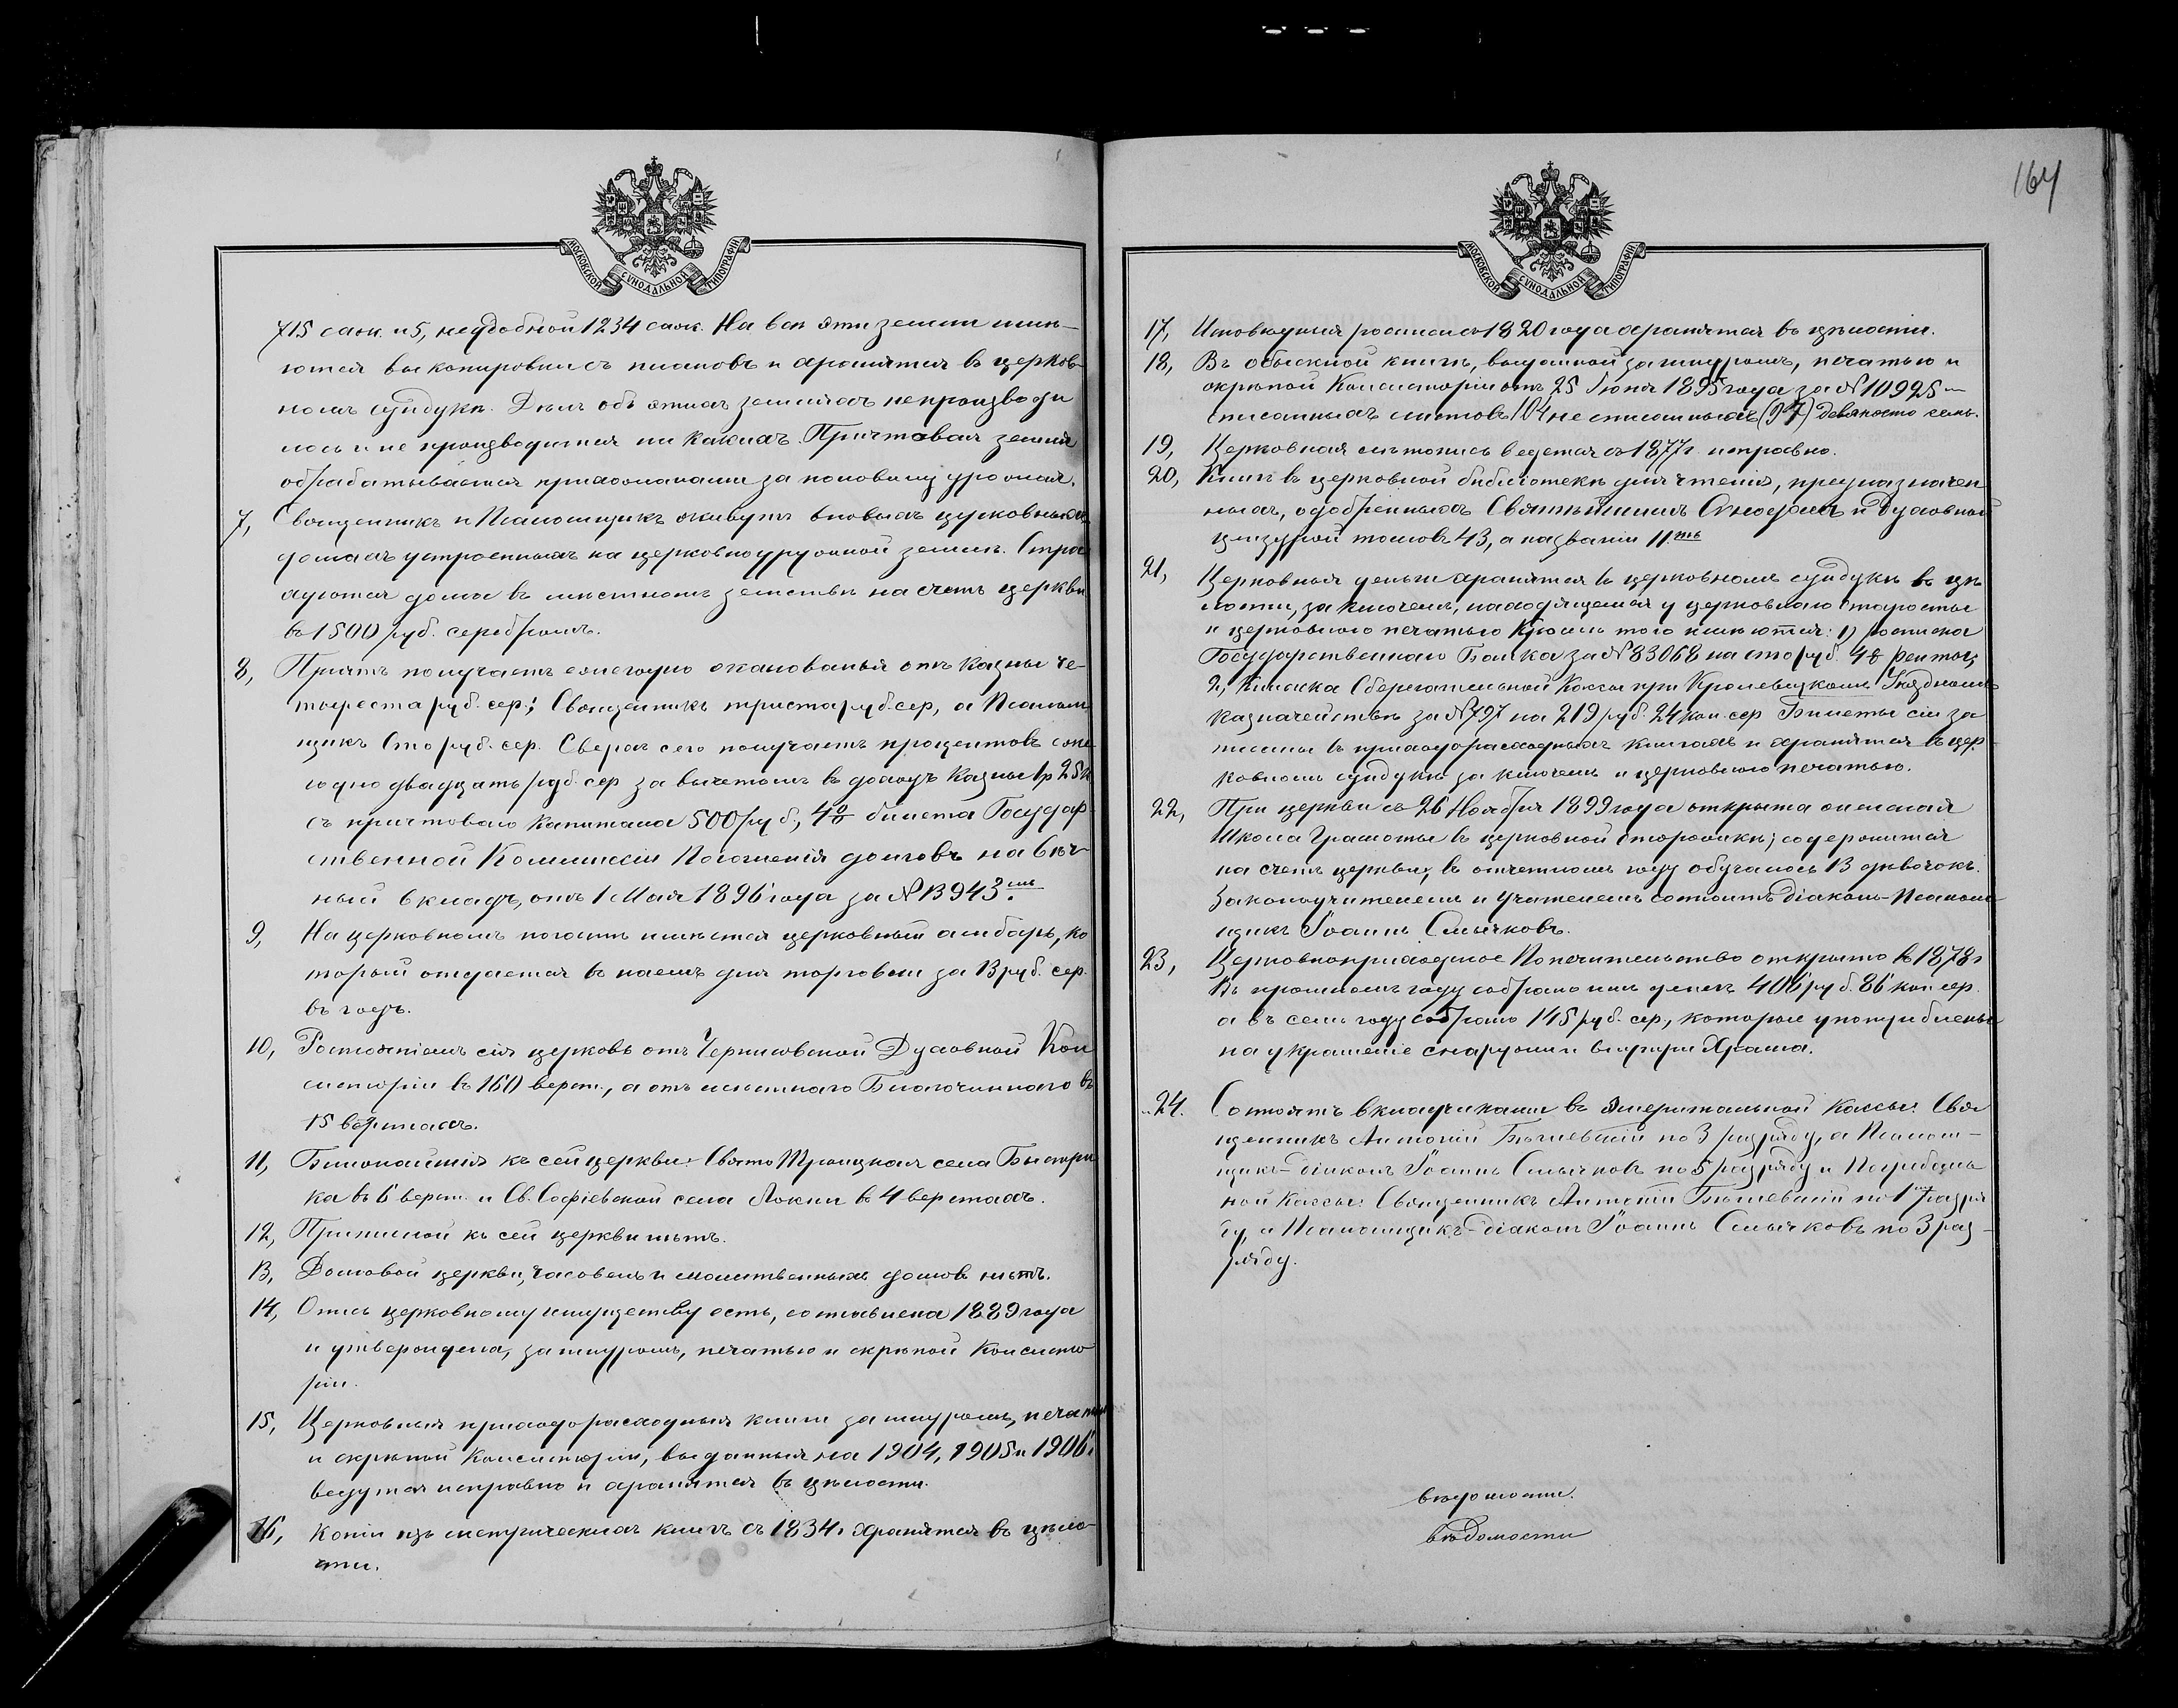 164
МОСКОВСКОЙ СѴНОДАЛЬНОЙ ТИПОГРАФІИ
715 саж. и 5, неудобной 1234 саж. На всѣ эти земли имѣ-
ются выкопировки съ плановъ и хранятся въ церков-
номъ сундукѣ. Дѣлъ объ этихъ земляхъ не производи
лось и не производится ни какихъ. Причтовая земля
обрабатывается прихожанами за половину урожая.
7, Священникъ и Псаломщикъ живутъ въ новыхъ церковныхъ
домахъ устроенныхъ на церковно-ружной земли. Стра
хуются дома въ мѣстномъ земствѣ на счетъ церкви
въ 1500 руб. серебромъ.
8, Причтъ получаетъ ежегодно жалованья отъ казны че-
тыреста руб. сер.; Священникъ триста руб. сер, а Псалом
щикъ Сто руб. сер. Сверхъ сего получаетъ процентовъ еже
годно двадцать руб. сер за вычетомъ въ доходъ Казны 1 р 25 к
съ причтоваго капитала 500 руб, 4% билета Государ
ственной Коммиссіи Погашенія долговъ на вѣч-
ный вкладъ, отъ 1 Мая 1896 года за №
9, На церковномъ погостѣ имѣется церковный амбаръ, ко
торый отдается въ наемъ для торговли за 13 руб. сер.
въ годъ.
10, Ростояніемъ сія церковь отъ Черниговской Духовной Кон
систоріи въ 160 верст., а отъ мѣстнаго Благочиннаго въ
15 верстахъ.
11, Ближайшія къ сей церкви: Свято Троицкая села Быстри
ка въ 6 верст. и Св. Софіевской села Локни въ 4 верстахъ.
12, Приписной къ сей церкви нѣтъ.
13, Домовой церкви, часовень и молитвенныхъ домовъ нѣтъ.
14, Опись церковному имуществу есть, составлена 1889 года
и утверждена, за шнуромъ, печатью и скрѣпой Консисто
ріи.
15, Церковныя приходорасходныя книги за шнуромъ, печатью
и скрѣпой Консисторіи, выданныя на 1904, 1905 и 1906 г.
ведутся исправно и хранятся въ цѣлости.
16, Копіи изъ метрическихъ книгъ съ 1834 г. хранятся въ цѣло-
сти.
МОСКОВСКОЙ СѴНОДАЛЬНОЙ ТИПОГРАФІИ
17, Исповѣдныя росписи съ 1820 года хранятся въ цѣлости.
18, Въ обыскной книгѣ, выданной за шнуромъ, печатью и
скрѣпой Консисторіи отъ 25 Іюня 1895 года за № 10925
писанныхъ листовъ 104 не писанныхъ (97) девяносто семь.
19, Церковная лѣтопись ведется съ 1877 г. исправно.
20, Книгъ въ церковной библіотекѣ для чтенія, предназначен
ныхъ, одобренныхъ Святѣйшимъ Сѵнодомъ и Духовной
цензурой томовъ 43, а названіи 11.ть
21, Церковныя деньги хранятся въ церковномъ сундукѣ въ цѣ
лости, за ключемъ, находящемся у церковнаго старосты
и церковною печатью Кромѣ того имѣются: 1) росписка
Государственнаго Банка за № 83068 на сто руб. 4% ренты,
2, Книжка Сберегательной Кассы при Кролевецкомъ Уѣздномъ
казначействѣ за № 797 на 219 руб. 24 коп. сер Билеты сіи за
писаны въ приходорасходныхъ книгахъ и хранятся въ цер
ковномъ сундукѣ за ключемъ и церковною печатью.
22, При церкви съ 26 Ноября 1899 года открыта женская
Школа Грамоты въ церковной сторожкѣ; содержится
на счетъ церкви, въ отчетномъ году обучалось 13 дѣвочокъ.
Законоучителемъ и Учителемъ состоитъ діаконъ-Псалом-
щикъ Іоаннъ Смычковъ.
23, Церковноприходское Попечительство открыто въ 1878 г
Въ прошломъ году собрано имъ денегъ 406 руб. 86 коп сер.
а въ семъ году собрано 145 руб. сер, которые употреблены
на украшеніе снаружи и внутри Храма.
24. Состоятъ вкладчиками въ Эмеритальной Кассы: Свя
щенникъ Антоній по 3 разряду, а Псалом-
щикъ-діаконъ Іоаннъ Смычковъ по 5 разряду и Погребаль
ной Кассы: Священникъ Антоній по 1 разря
ду, а Псаломщикъ-діаконъ Іоаннъ Смычковъ по 3 раз-
ряду.
вѣдомости.
вѣдомости